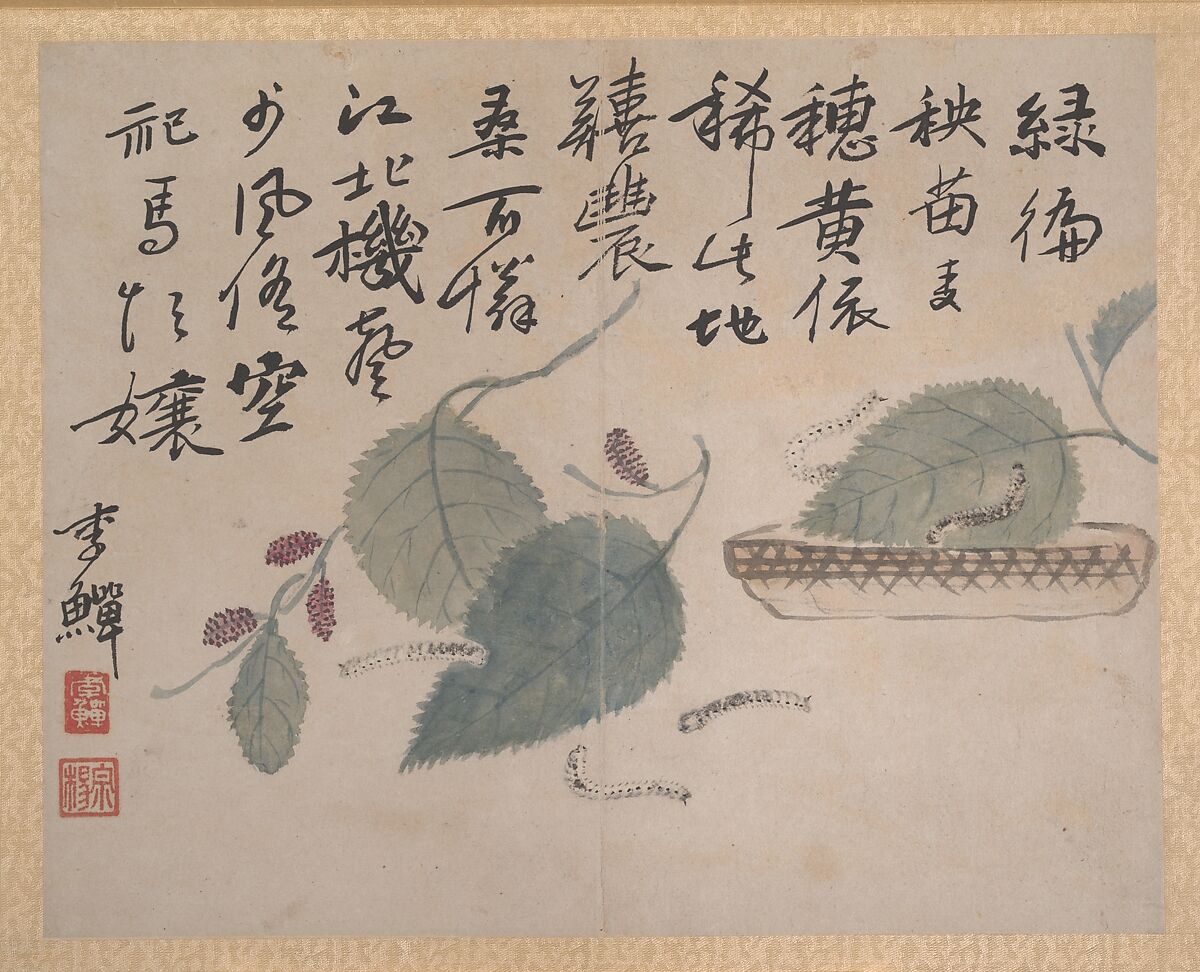 緑徧
秧苗麦
穗黄依
稀此地
囏農
桑可憐
江北機聲
少風俗空
祀馬頭孃
李鱓
李鱓
宗楊